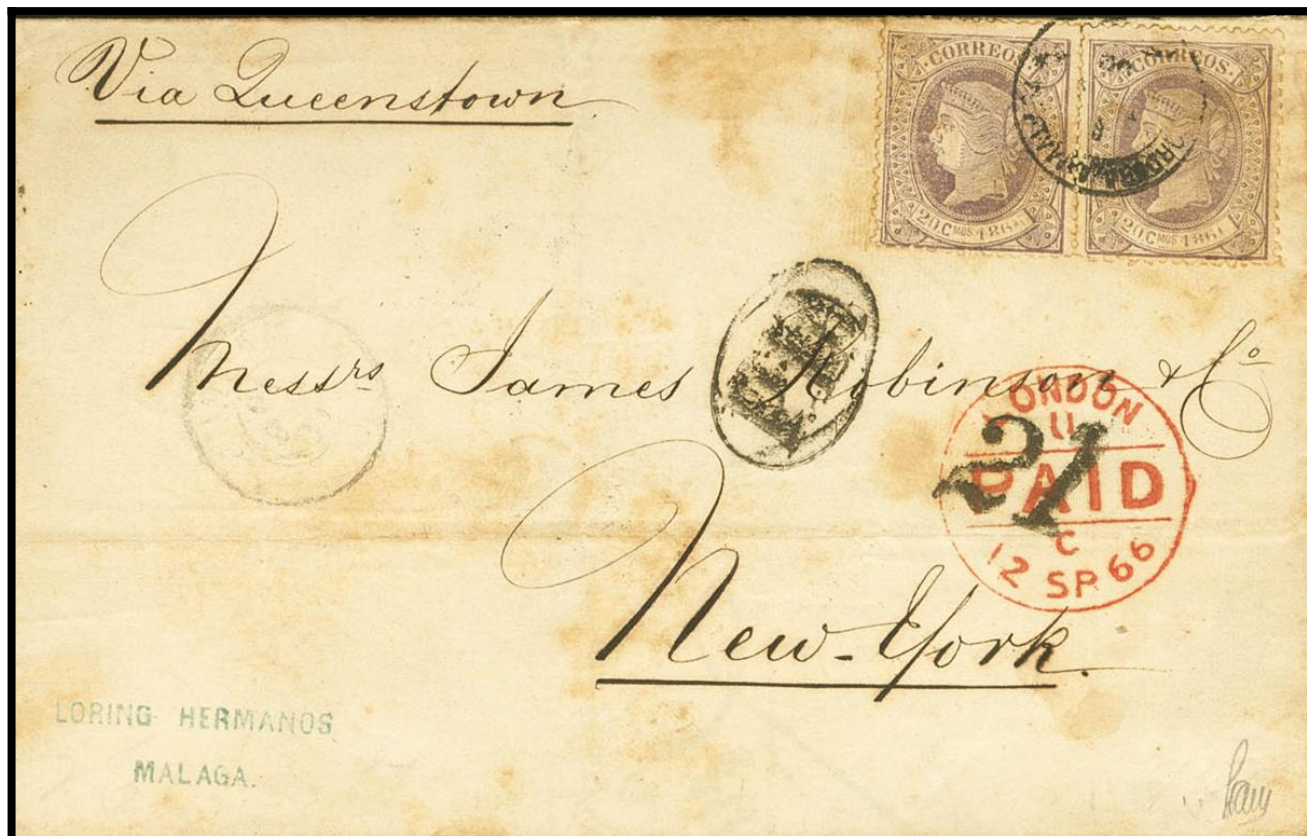 Via Queenstown
CORREOS
20 Cmos 1866
CORREOS
20 Cmos 1866
Messrs James Robinson & Co
LONDON
U
PAID
C
12 SP 66
21
New-York
LORING HERMANOS
MALAGA.